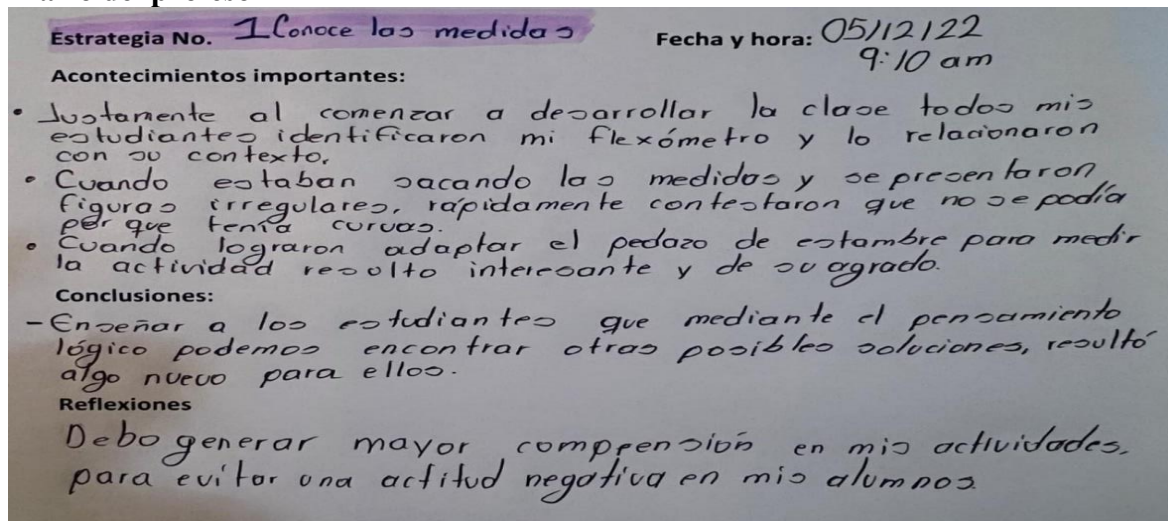 Estrategia No. 1 Conoce las medidas Fecha y hora: 05/12/22
9:10 am
Acontecimientos importantes:
• Justamente al comenzar a desarrollar la clase todos mis
estudiantes identificaron mi flexómetro y lo relacionaron
con su contexto.
• Cuando estaban sacando las medidas y se presentaron
figuras irregulares, rápidamente contestaron que no se podía
per que tenía curvas.
• Cuando lograron adaptar el pedazo de estambre para medir
la actividad resulto interesante y de su agrado.
Conclusiones:
- Enseñar a los estudiantes que mediante el pensamiento
lógico podemos encontrar otras posibles soluciones, resultó
algo nuevo para ellos.
Reflexiones
Debo generar mayor comprensión en mis actividades.
para evitar una actitud negativa en mis alumnos.